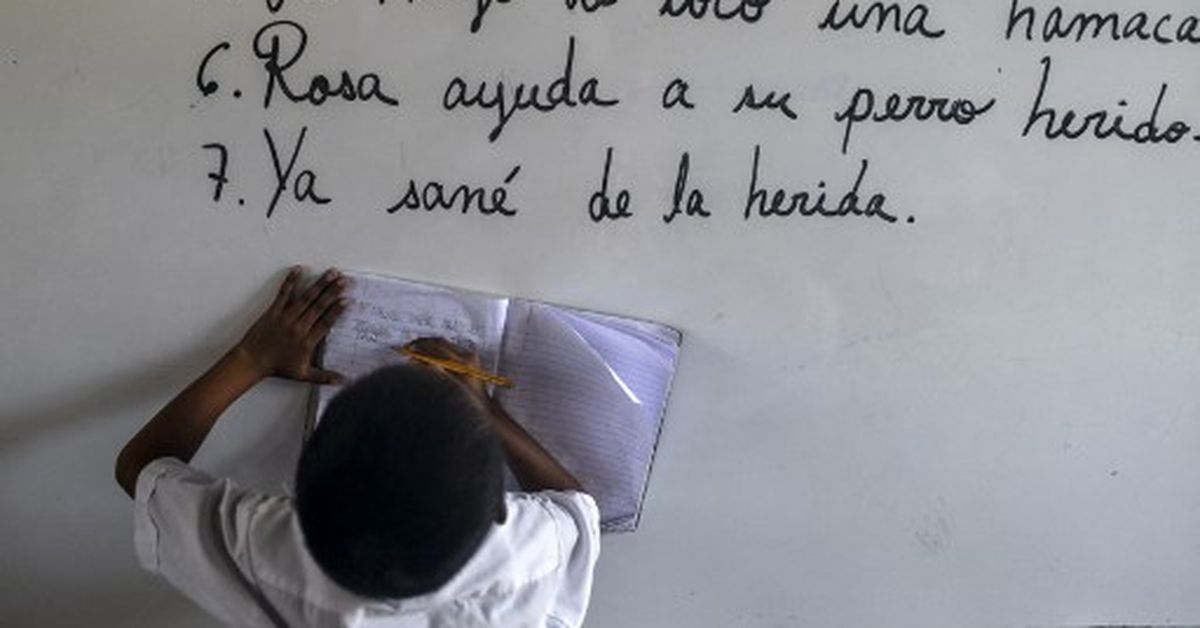 una hamaca
6. Rosa ayuda a su perro herido.
7. Ya sané de la herida.